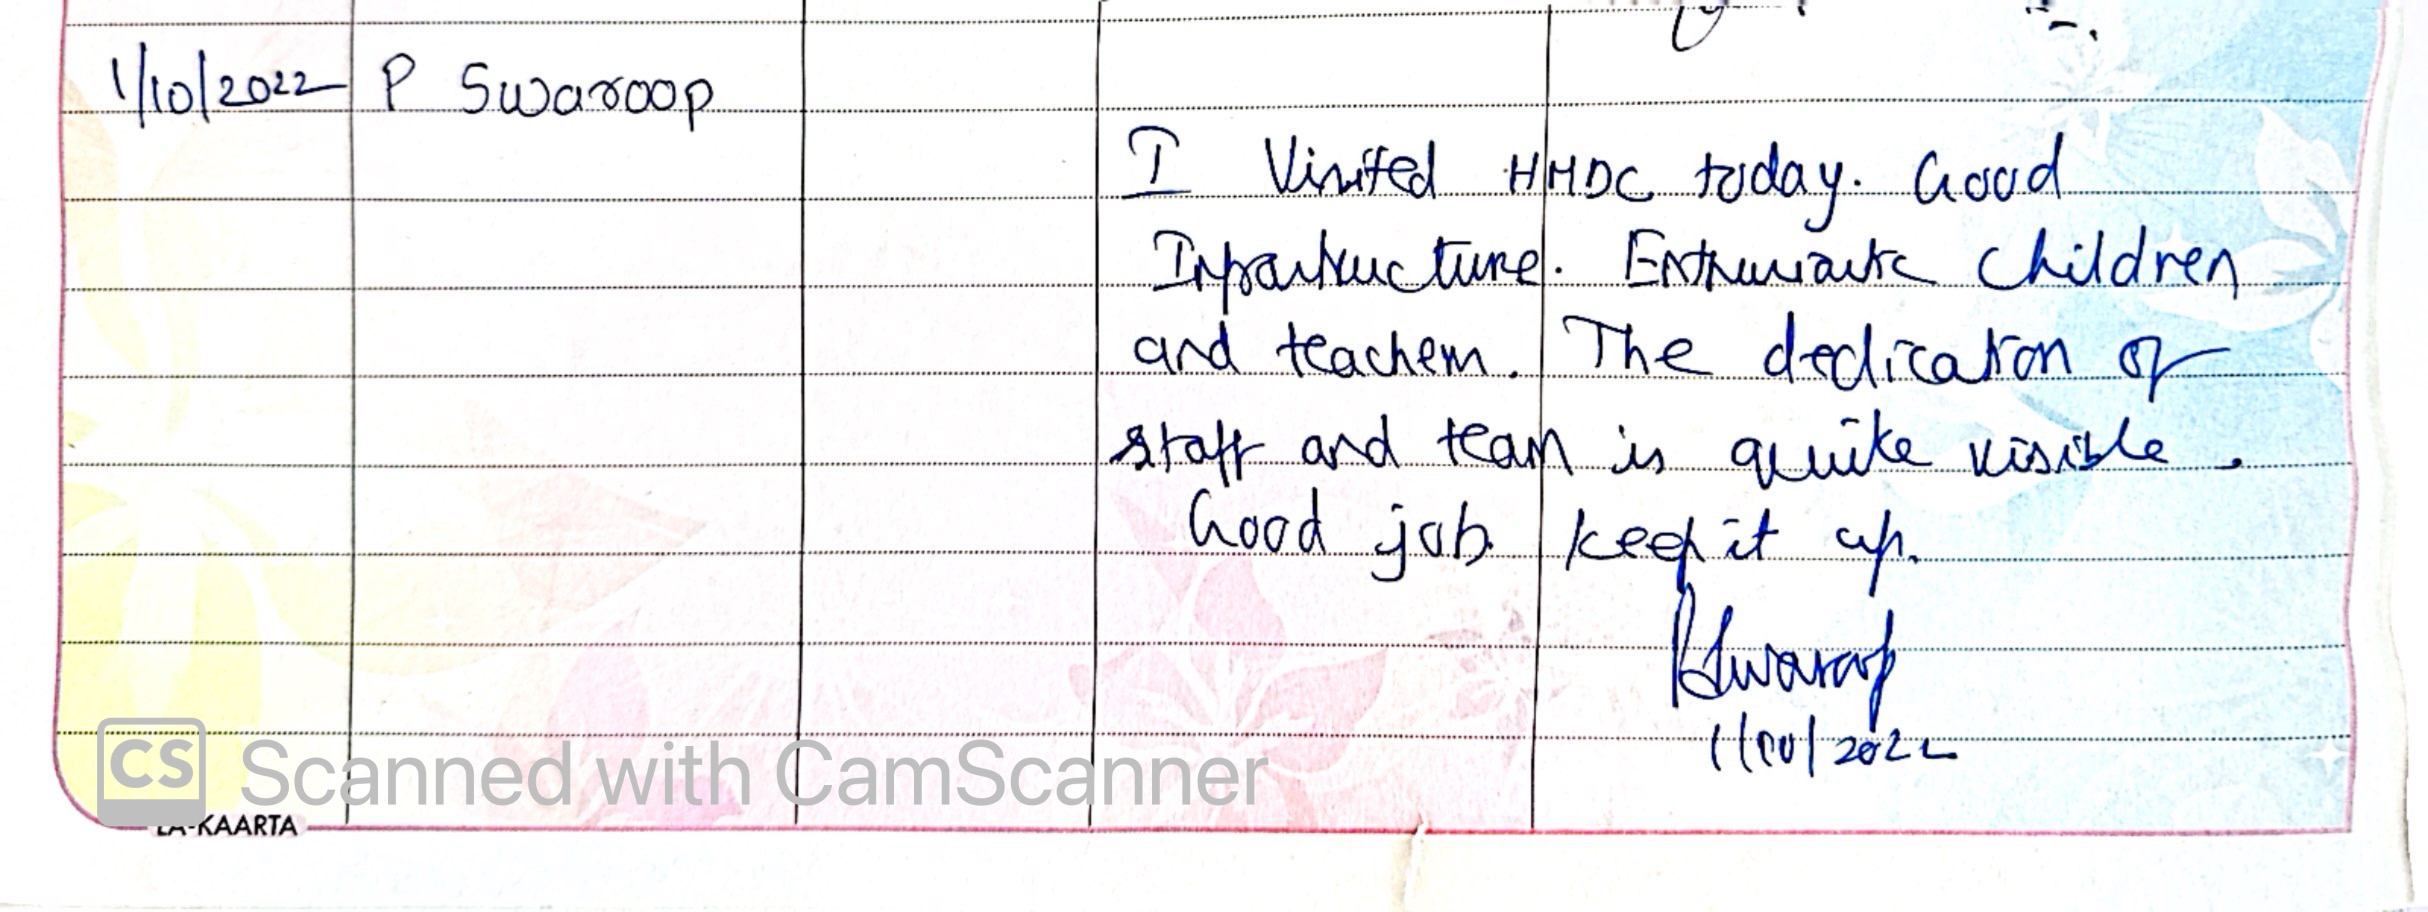 1/10/2022 P Swaroop
I Visited HMDC today. Good
Infrastructure. Enthusiastic children
and teachers. The dedication of
staff and team is quite visible.
Good job keep it up.
PSwaroop
1/10/2022
CS Scanned with CamScanner
LA-KAARTA